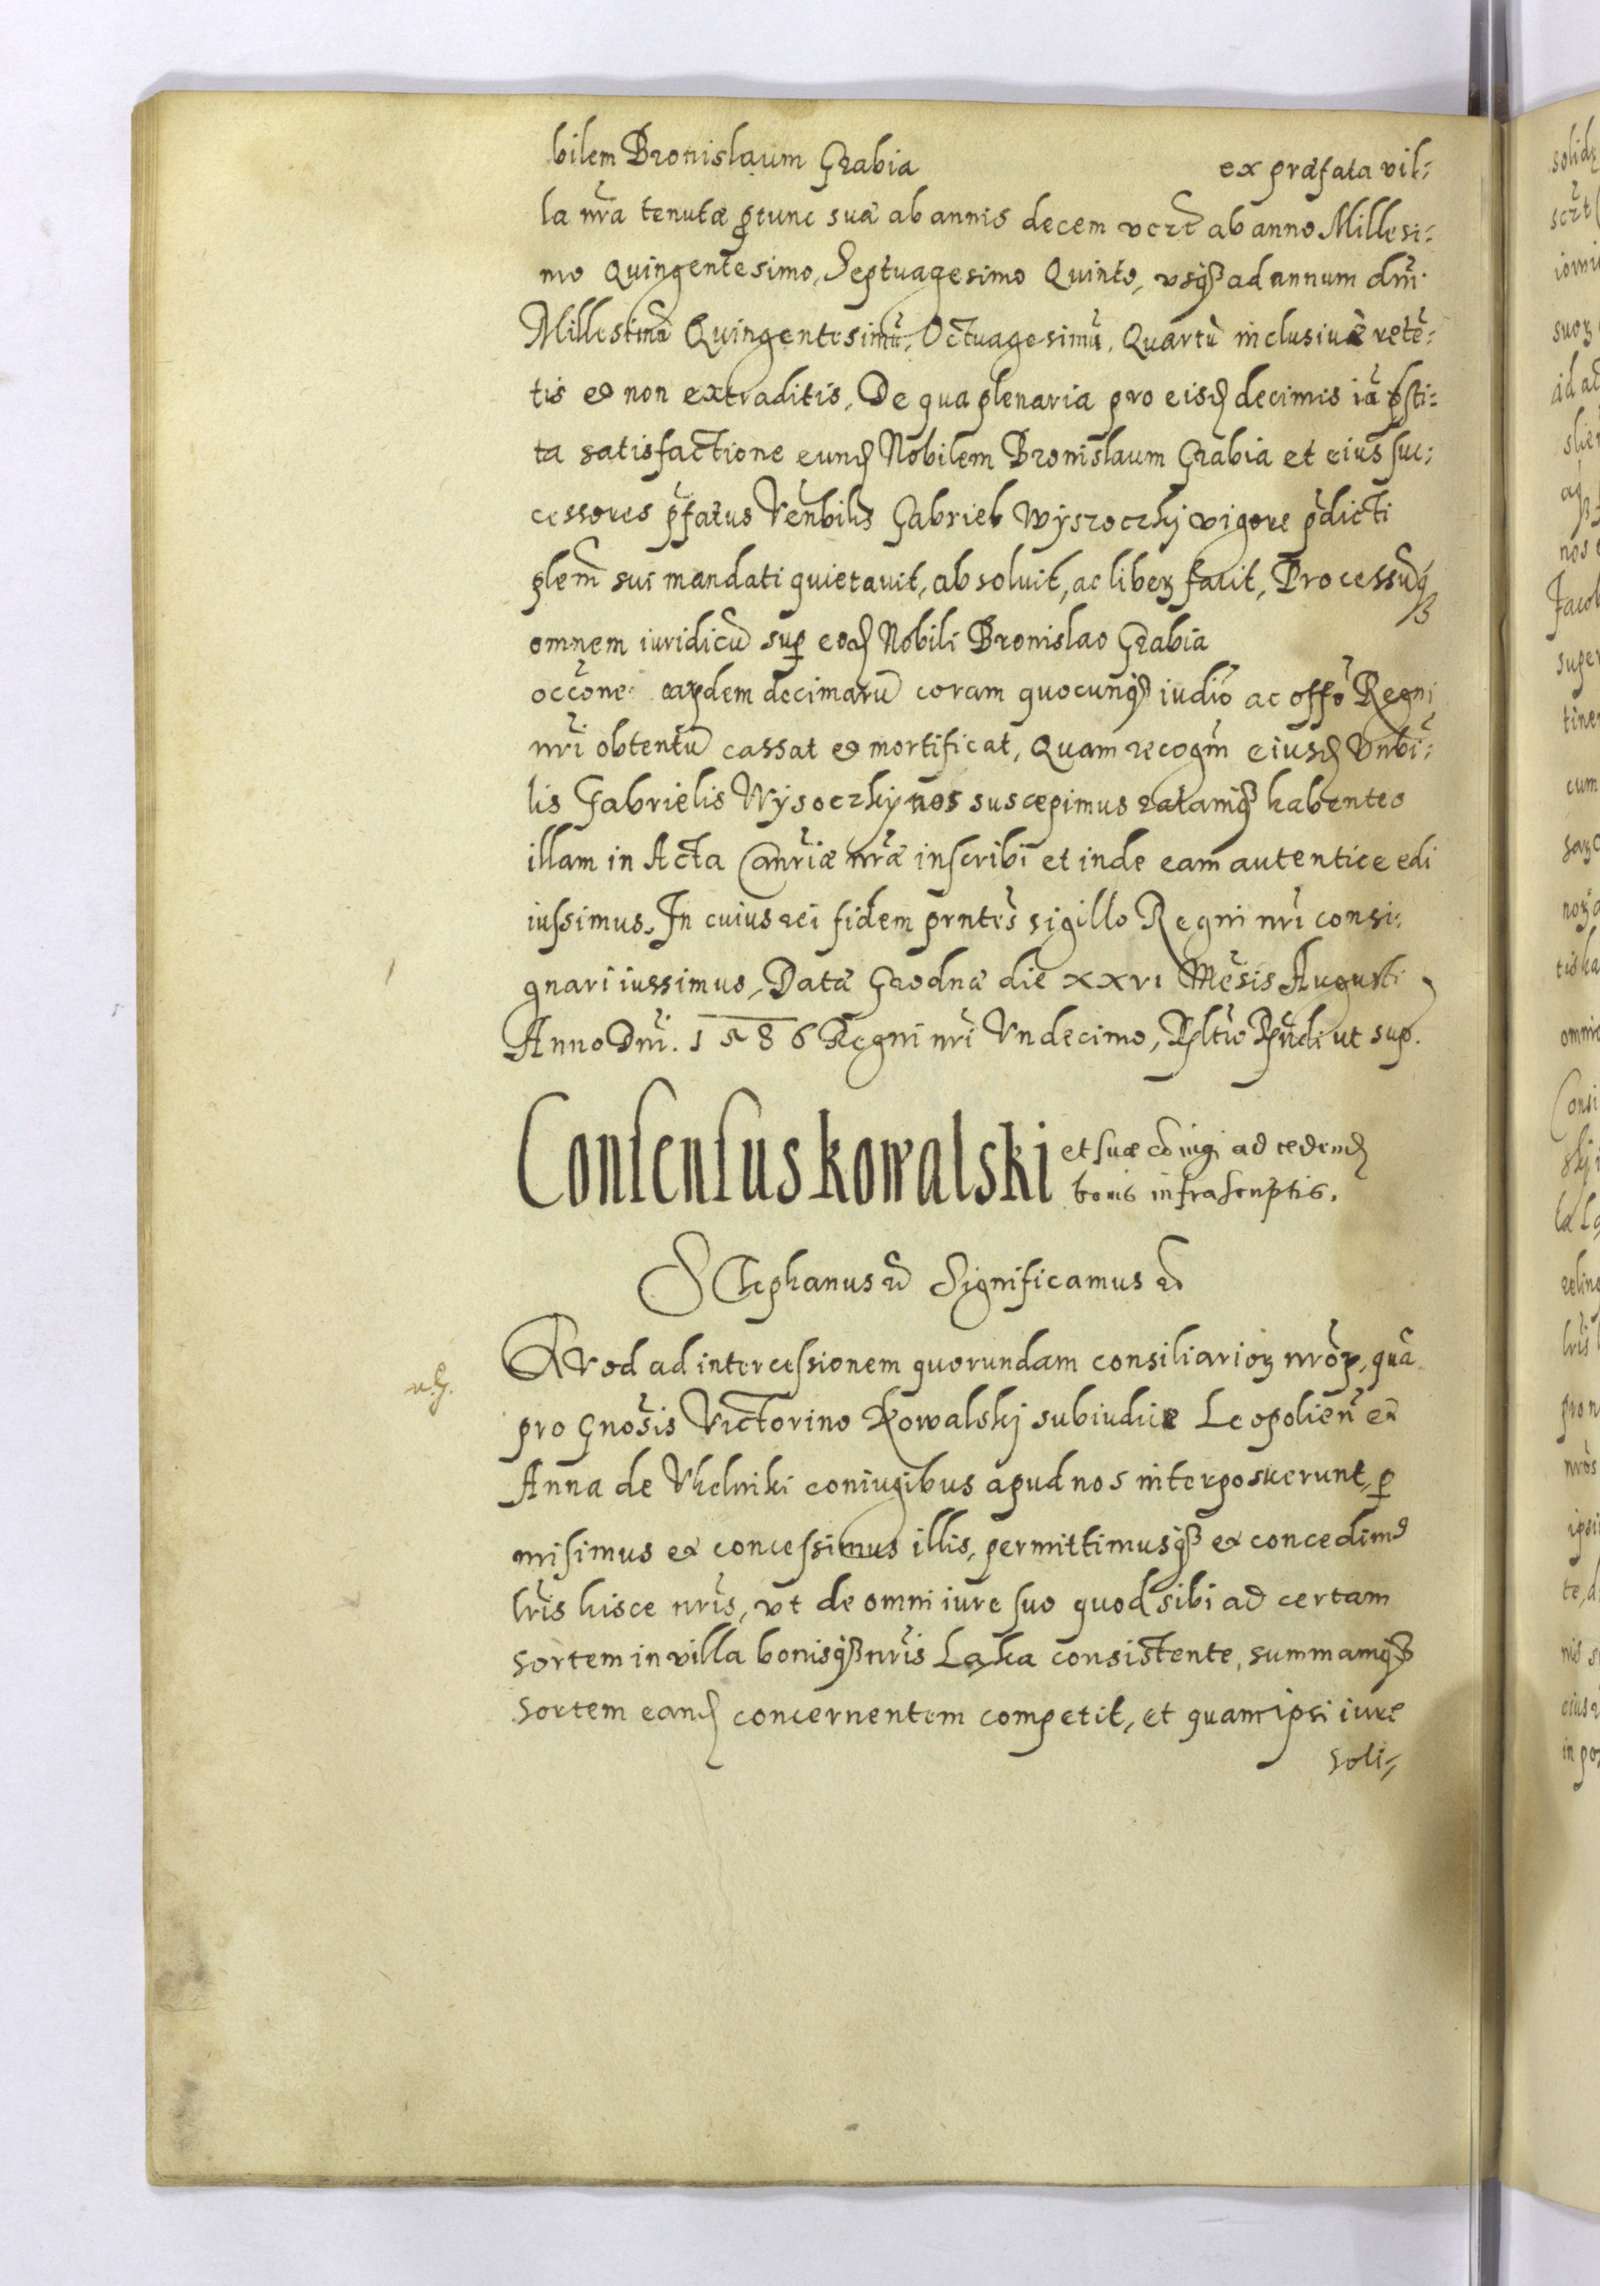 bilem Bronislaum Grabia ex præfata vil-
la nr̃a tenutæ ꝓtunc suæ ab annis decem vcz̃t ab anno Millesi-
mo Quingentesimo, Septuagesimo Quinto, vsqꝫ ad annum dnĩ.
Millesimũ Quingentesimũ, Octuagesimũ, Quartũ inclusiuè retẽ-
tis et non extraditis, De qua plenaria pro eisđ decimis iã p̃sti-
ta satisfactione eunđ Nobilem Bronislaum Grabia et eius suc-
cessores p̃fatus Venb̃ilis Gabriel Wyszoczkj vigore p̃dicti
plem̃ sui mandati quietauit, absoluit, ac liberꝫ facit, Processũqꝫ
omnem iuridicũ suꝑ eođ Nobili Bronislao Grabia
occõne earundem decimarũ coram quocunqꝫ iudiõ ac offõ Regni
nrĩ obtentũ cassat et mortificat, Quam recogm̃ eiusđ Vnbĩ-
lis Gabrielis Wysoczky nos suscepimus ratamqꝫ habentes
illam in Acta Canr̃iæ nr̃æ inscribi et inde eam autentice edi
iussimus, In cuius rei fidem prntẽs sigillo Regni nrĩ consi-
gnari iussimus, Datæ Grodnæ die XXVI Mẽsis Augusti
Anno Dnĩ. 1586 Regni nrĩ Vndecimo, Rltĩo Rñdi ut sup.
Consensus Kowalski et suæ cõiugi ad cedenđ
bonis infrascriptis.
Stephanus etc̃ Significamus etc̃
Quod ad intercessionem quorundam consiliarioꝝ nr̃oꝝ, quã
pro Gnosĩs Victorino Kowalskj subiudice Leopolieñ et
Anna de Vhelniki coniugibus apud nos interposuerunt, ꝑ
misimus et concessimus illis, permittimusqꝫ et concedimꝰ
lrĩs hisce nrĩs, vt de omni iure suo quod sibi ad certam
sortem in villa bonisqꝫ nrĩs Laka consistente, summamqꝫ
sortem eanđ concernentem competit, et quam ipsi iure
soli-